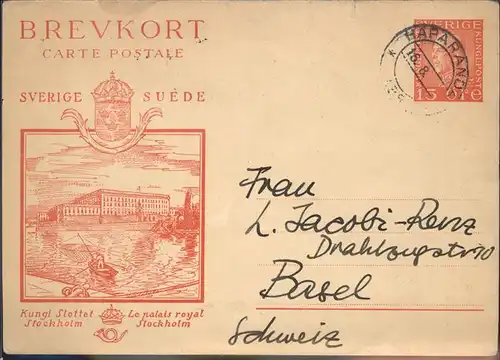 BREVKORT
CARTE POSTALE
SVERIGE SUÈDE
SVERIGE
KUNGL.POST
15
HAPARANDA
15.8.
Frau
L. Jacobi-Renz
Drahtzugstr 70
Basel
Schweiz
Kungl Slottet Le palais royal
Stockholm Stockholm